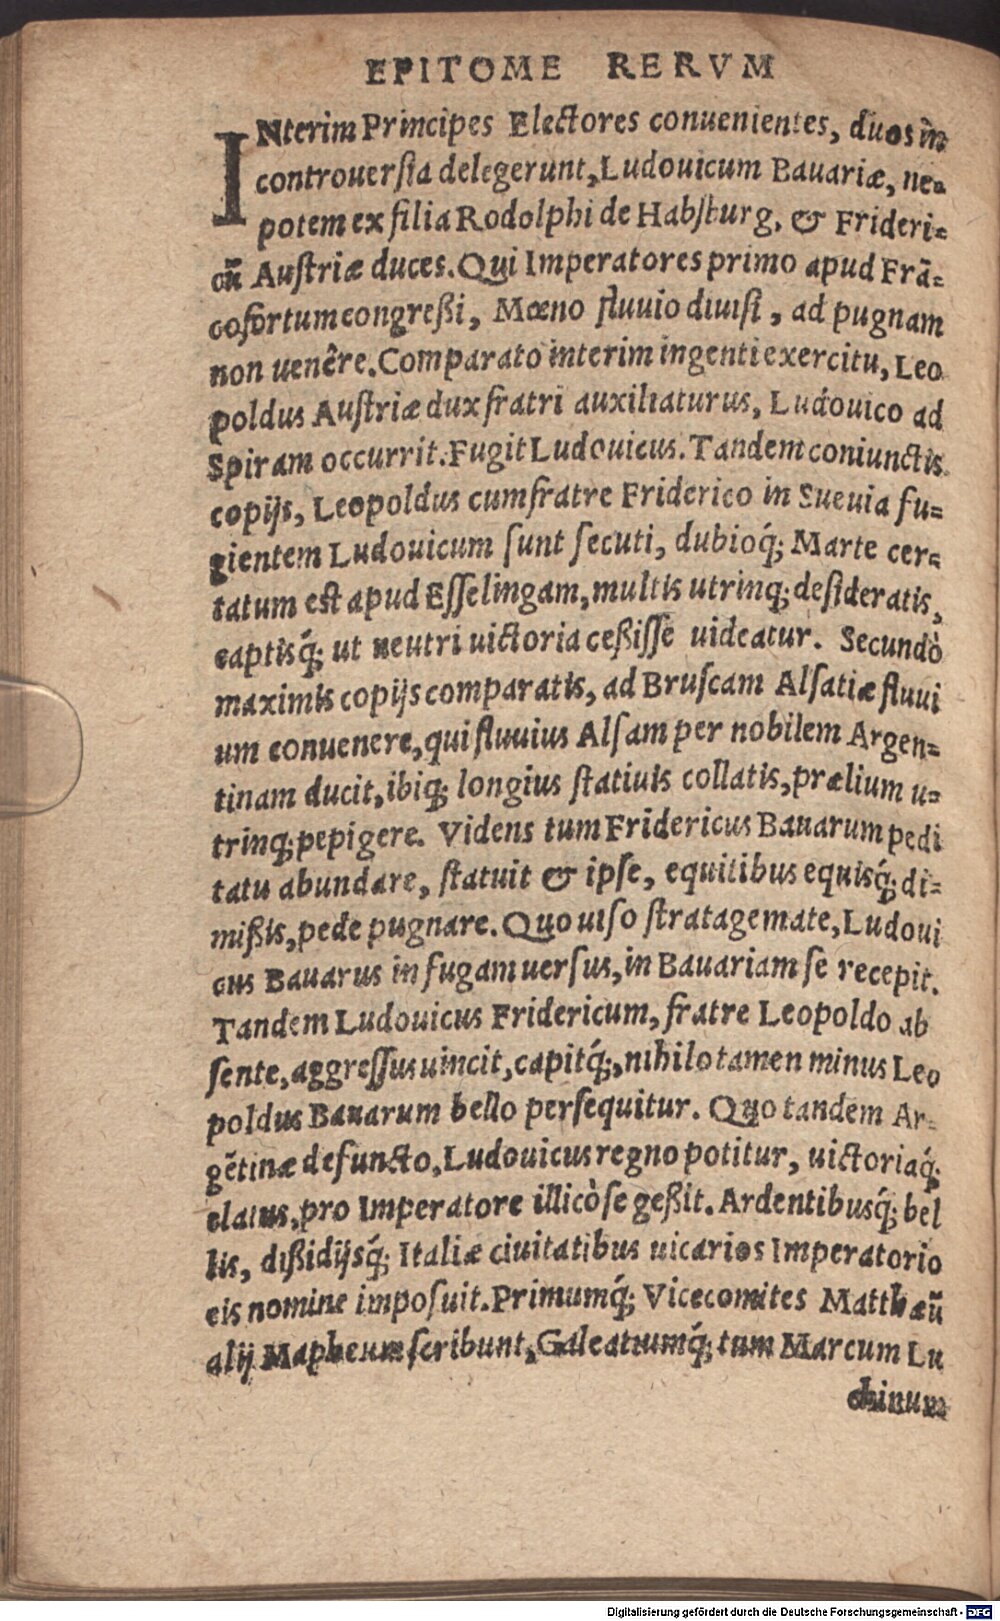 EPITOME RERVM
INterim Principes Electores conuenientes, duos in
controuersia delegerunt, Ludouicum Bauariæ, ne=
potem ex filia Rodolphi de Habsburg, & Frideri=
cū Austriæ duces. Qui Imperatores primo apud Frā=
cofortum congreßi, Mœno fluuio diuisi, ad pugnam
non uenêre. Comparato interim ingenti exercitu, Leo
poldus Austriæ dux fratri auxiliaturus, Ludouico ad
Spiram occurrit. Fugit Ludouicus. Tandem coniunctis
copijs, Leopoldus cum fratre Friderico in Sueuia fu=
gientem Ludouicum sunt secuti, dubioq́; Marte cer=
tatum est apud Esselingam, multis utrinq; desideratis,
captisq́; ut neutri uictoria ceßisse uideatur. Secundò
maximis copijs comparatis, ad Bruscam Alsatiæ fluui
um conuenere, qui fluuius Alsam per nobilem Argen=
tinam ducit, ibiq; longius statiuis collatis, prælium u=
trinq; pepigere. Videns tum Fridericus Bauarum pedi
tatu abundare, statuit & ipse, equitibus equisq́; di=
mißis, pede pugnare. Quo uiso stratagemate, Ludoui
cus Bauarus in fugam uersus, in Bauariam se recepit.
Tandem Ludouicus Fridericum, fratre Leopoldo ab
sente, aggressus uincit, capitq́;, nihilo tamen minus Leo
poldus Bauarum bello persequitur. Quo tandem Ar=
gētinæ defuncto, Ludouicus regno potitur, uictoriaq́;
elatus, pro Imperatore illicò se geßit. Ardentibusq́; bel
lis, dißidijsq́; Italiæ ciuitatibus uicarios Imperatorio
eis nomine imposuit. Primumq́; Vicecomites Matthæū
alij Mapheum scribunt, Galeatiumq́; tum Marcum Lu
chinum
Digitalisierung gefördert durch die Deutsche Forschungsgemeinschaft - DFG